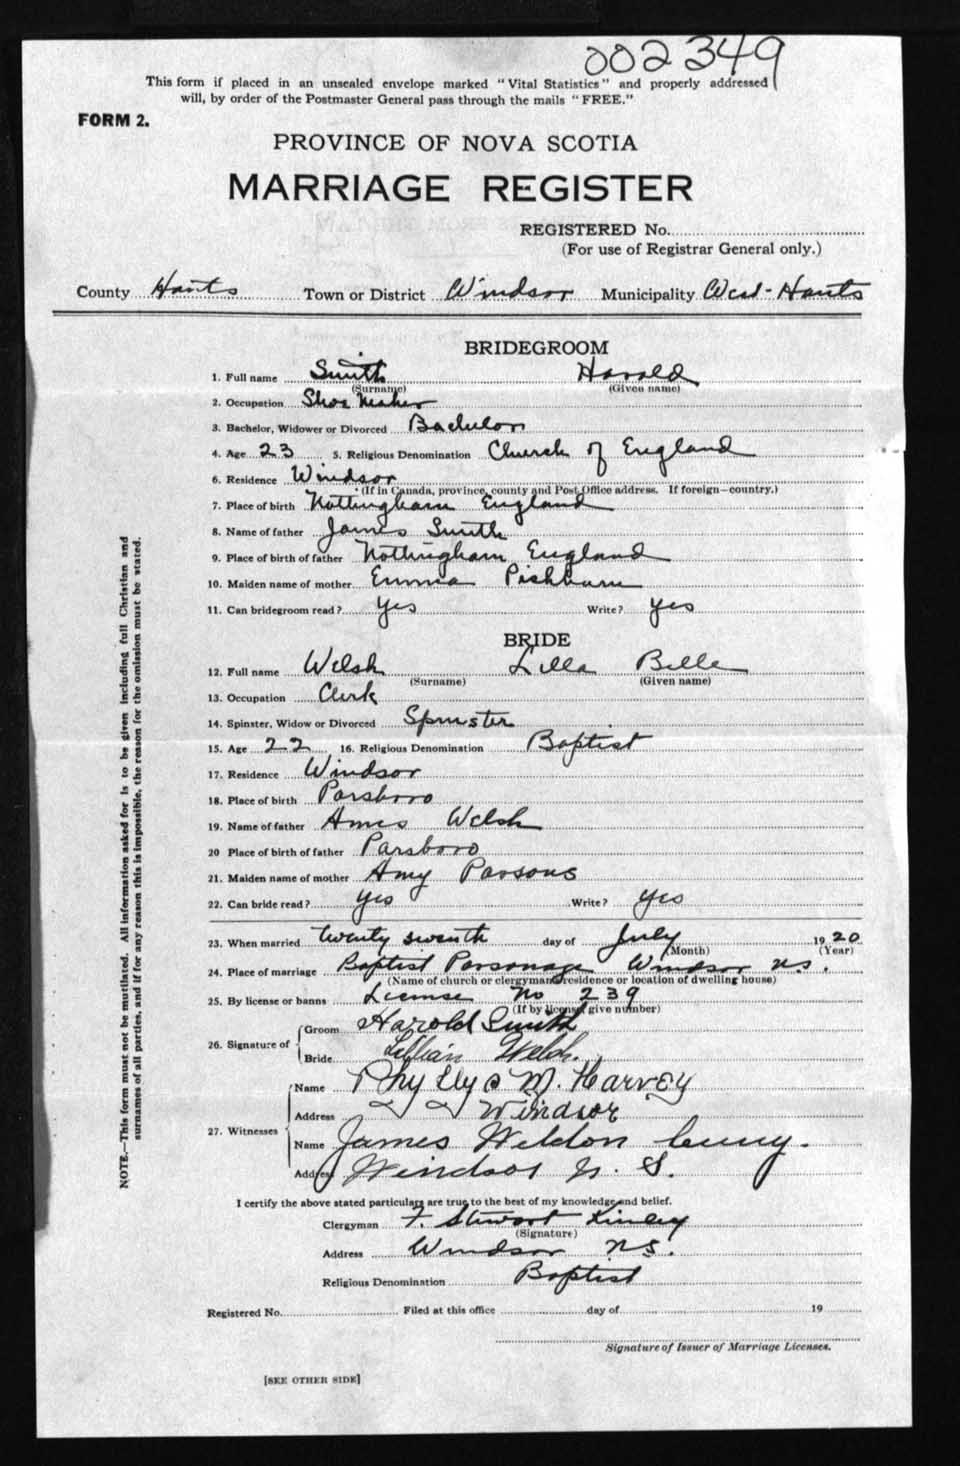 002349
This form if placed in an unsealed envelope marked "Vital Statistics" and properly addressed
will, by order of the Postmaster General pass through the mails "FREE."
FORM 2.
PROVINCE OF NOVA SCOTIA
MARRIAGE REGISTER
REGISTERED No.
(For use of Registrar General only.)
County Hants Town or District Windsor Municipality West-Hants
BRIDEGROOM
1. Full name Smith Harold
(Surname) (Given name)
2. Occupation Shoe Maker
3. Bachelor, Widower or Divorced Bachelor
4. Age 23 5. Religious Denomination Church of England
6. Residence Windsor
(If in Canada, province, county and Post Office address. If foreign—country.)
7. Place of birth Nottingham England
8. Name of father James Smith
9. Place of birth of father Nottingham England
10. Maiden name of mother Emma
11. Can bridegroom read? yes Write? yes
BRIDE
12. Full name Welsh Lilla Belle
(Surname) (Given name)
13. Occupation Clerk
14. Spinster, Widow or Divorced Spinster
15. Age 22 16. Religious Denomination Baptist
17. Residence Windsor
18. Place of birth Parsboro
19. Name of father Amos Welsh
20 Place of birth of father Parsboro
21. Maiden name of mother Amy Parsons
22. Can bride read? yes Write? yes
23. When married twenty seventh day of July 1920
(Month) (Year)
24. Place of marriage Baptist Parsonage Windsor N.S.
(Name of church or clergyman's residence or location of dwelling house)
25. By license or banns License No 239
(If by license, give number)
26. Signature of Groom Harold Smith
Bride Lillian Welch.
27. Witnesses
Name Phyllys M. Harvey
Address Windsor
Name James Weldon
Address Windsor N. S.
I certify the above stated particulars are true to the best of my knowledge and belief.
Clergyman F. Stewart Kinley
(Signature)
Address Windsor N.S.
Religious Denomination Baptist
Registered No. Filed at this office day of 19
Signature of Issuer of Marriage Licenses.
[SEE OTHER SIDE]
NOTE.—This form must not be mutilated. All information asked for is to be given including full Christian and
surnames of all parties, and if for any reason this is impossible, the reason for the omission must be stated.